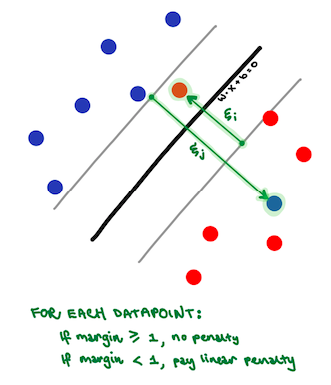 w·x+b=0
ξi
ξj
FOR EACH DATAPOINT:
If margin ≥ 1, no penalty
If margin < 1, pay linear penalty